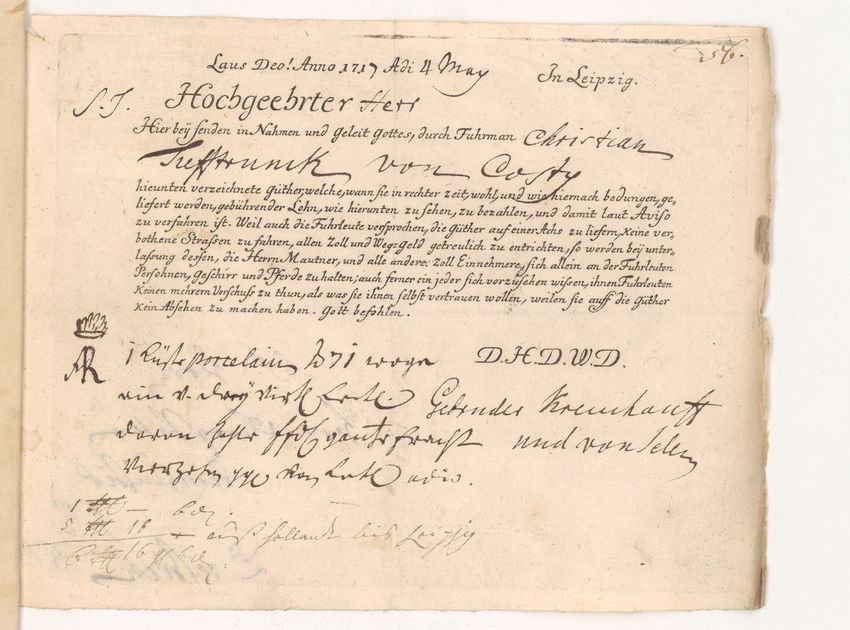 56.
Laus Deo! Anno 1717 Adi 4 May In Leipzig.
S. T. Hochgeehrter Herr
Hierbey senden in Nahmen und Geleit Gottes, durch Fuhrman Christian
von
hieunten verzeichnete Güther, welche, wann sie in rechter zeit, wohl, und wie hiernach bedungen, ge⸗
liefert worden, gebührender Lohn, wie hierunten zu sehen, zu bezahlen, und damit laut Aviso
zu verfahren ist. Weil auch die Fuhrleute versprochen, die Güther auf einer Achs zu liefern, Keine ver⸗
bothene Strassen zu fahren, allen Zoll und Weg⸗Geld getreulich zu entrichten, so werden bey unter⸗
lassung dessen, die Herrn Mautner, und alle andere Zoll Einnehmere, sich allein an der Fuhrleuten
Persohnen, Geschirr und Pferde zu halten; auch ferner ein jeder sich vorzusehen wissen, ihnen Fuhrleuten
Keinen mehrern Vorschuss zu thun, als was sie ihnen selbst vertrauen wollen, weilen sie auff die Güther
Kein Absehen zu machen haben. Gott befohlen.
AR 1 Kiste porcelain No 71 D. H. D. W. D.
Gebruder
gantze fracht und von
Vierzehn
1
5 16
6 16 auß Hollandt bis Leipzig